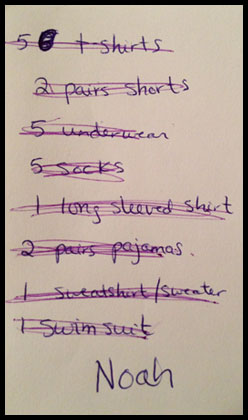 5 t-shirts
2 pairs shorts
5 underwear
5 socks
1 long sleeved shirt
2 pairs pajamas.
1 sweatshirt/sweater
1 swimsuit
Noah